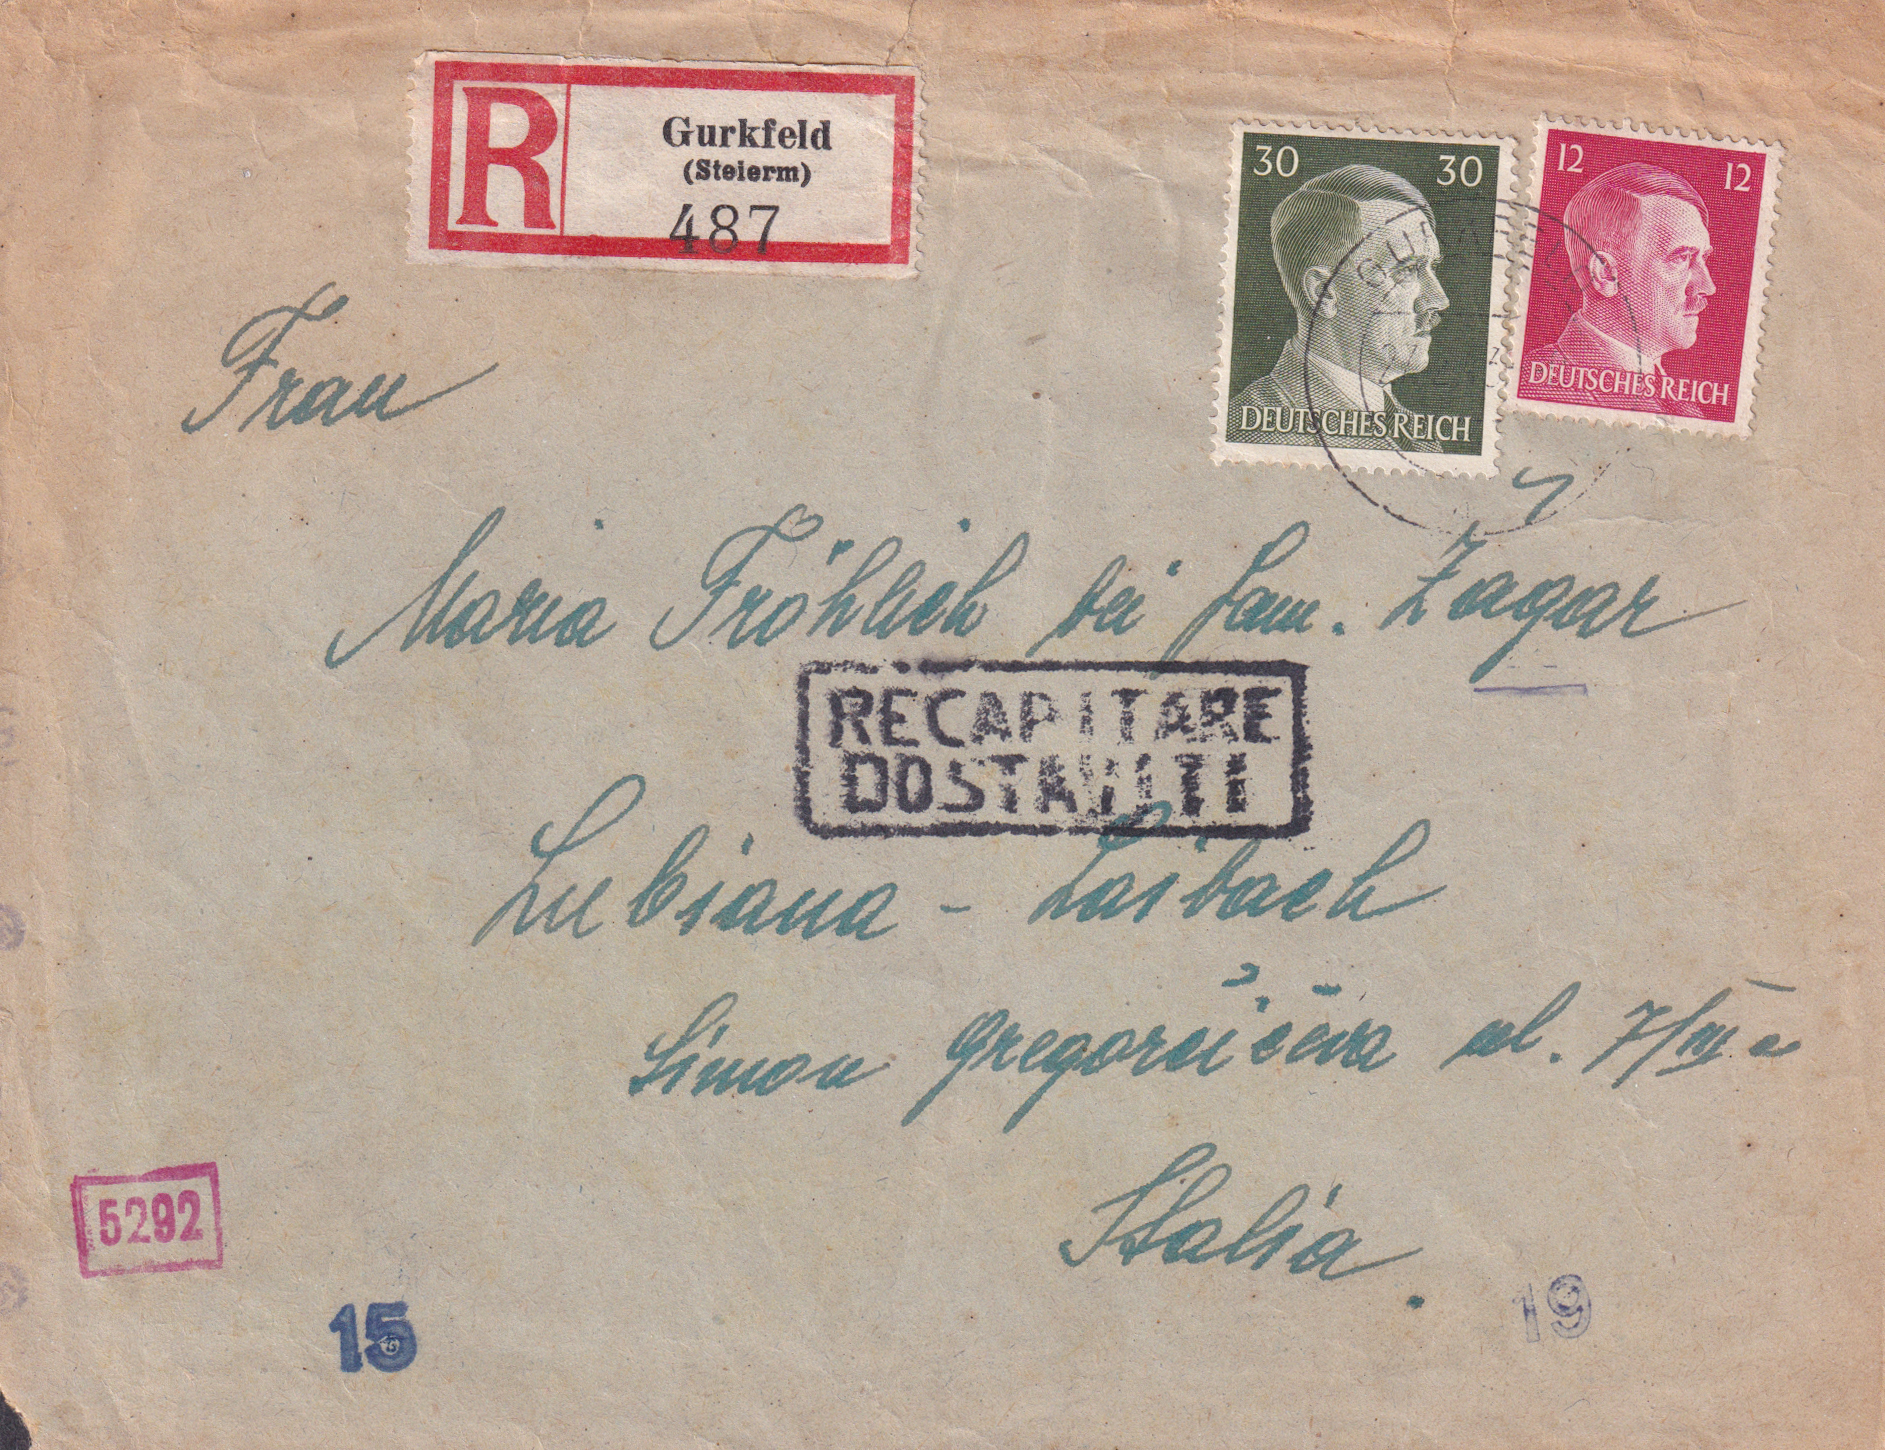 R
Gurkfeld
(Steierm)
487
30 30
DEUTSCHES REICH
12 12
DEUTSCHES REICH
Frau
Maria Fröhlich bei Fam. Žagar
RECAPITARE
DOSTAVITI
Lubiana - Laibach
Simon Gregorčičeva ul. 7/III
Italia.
5292
15
19